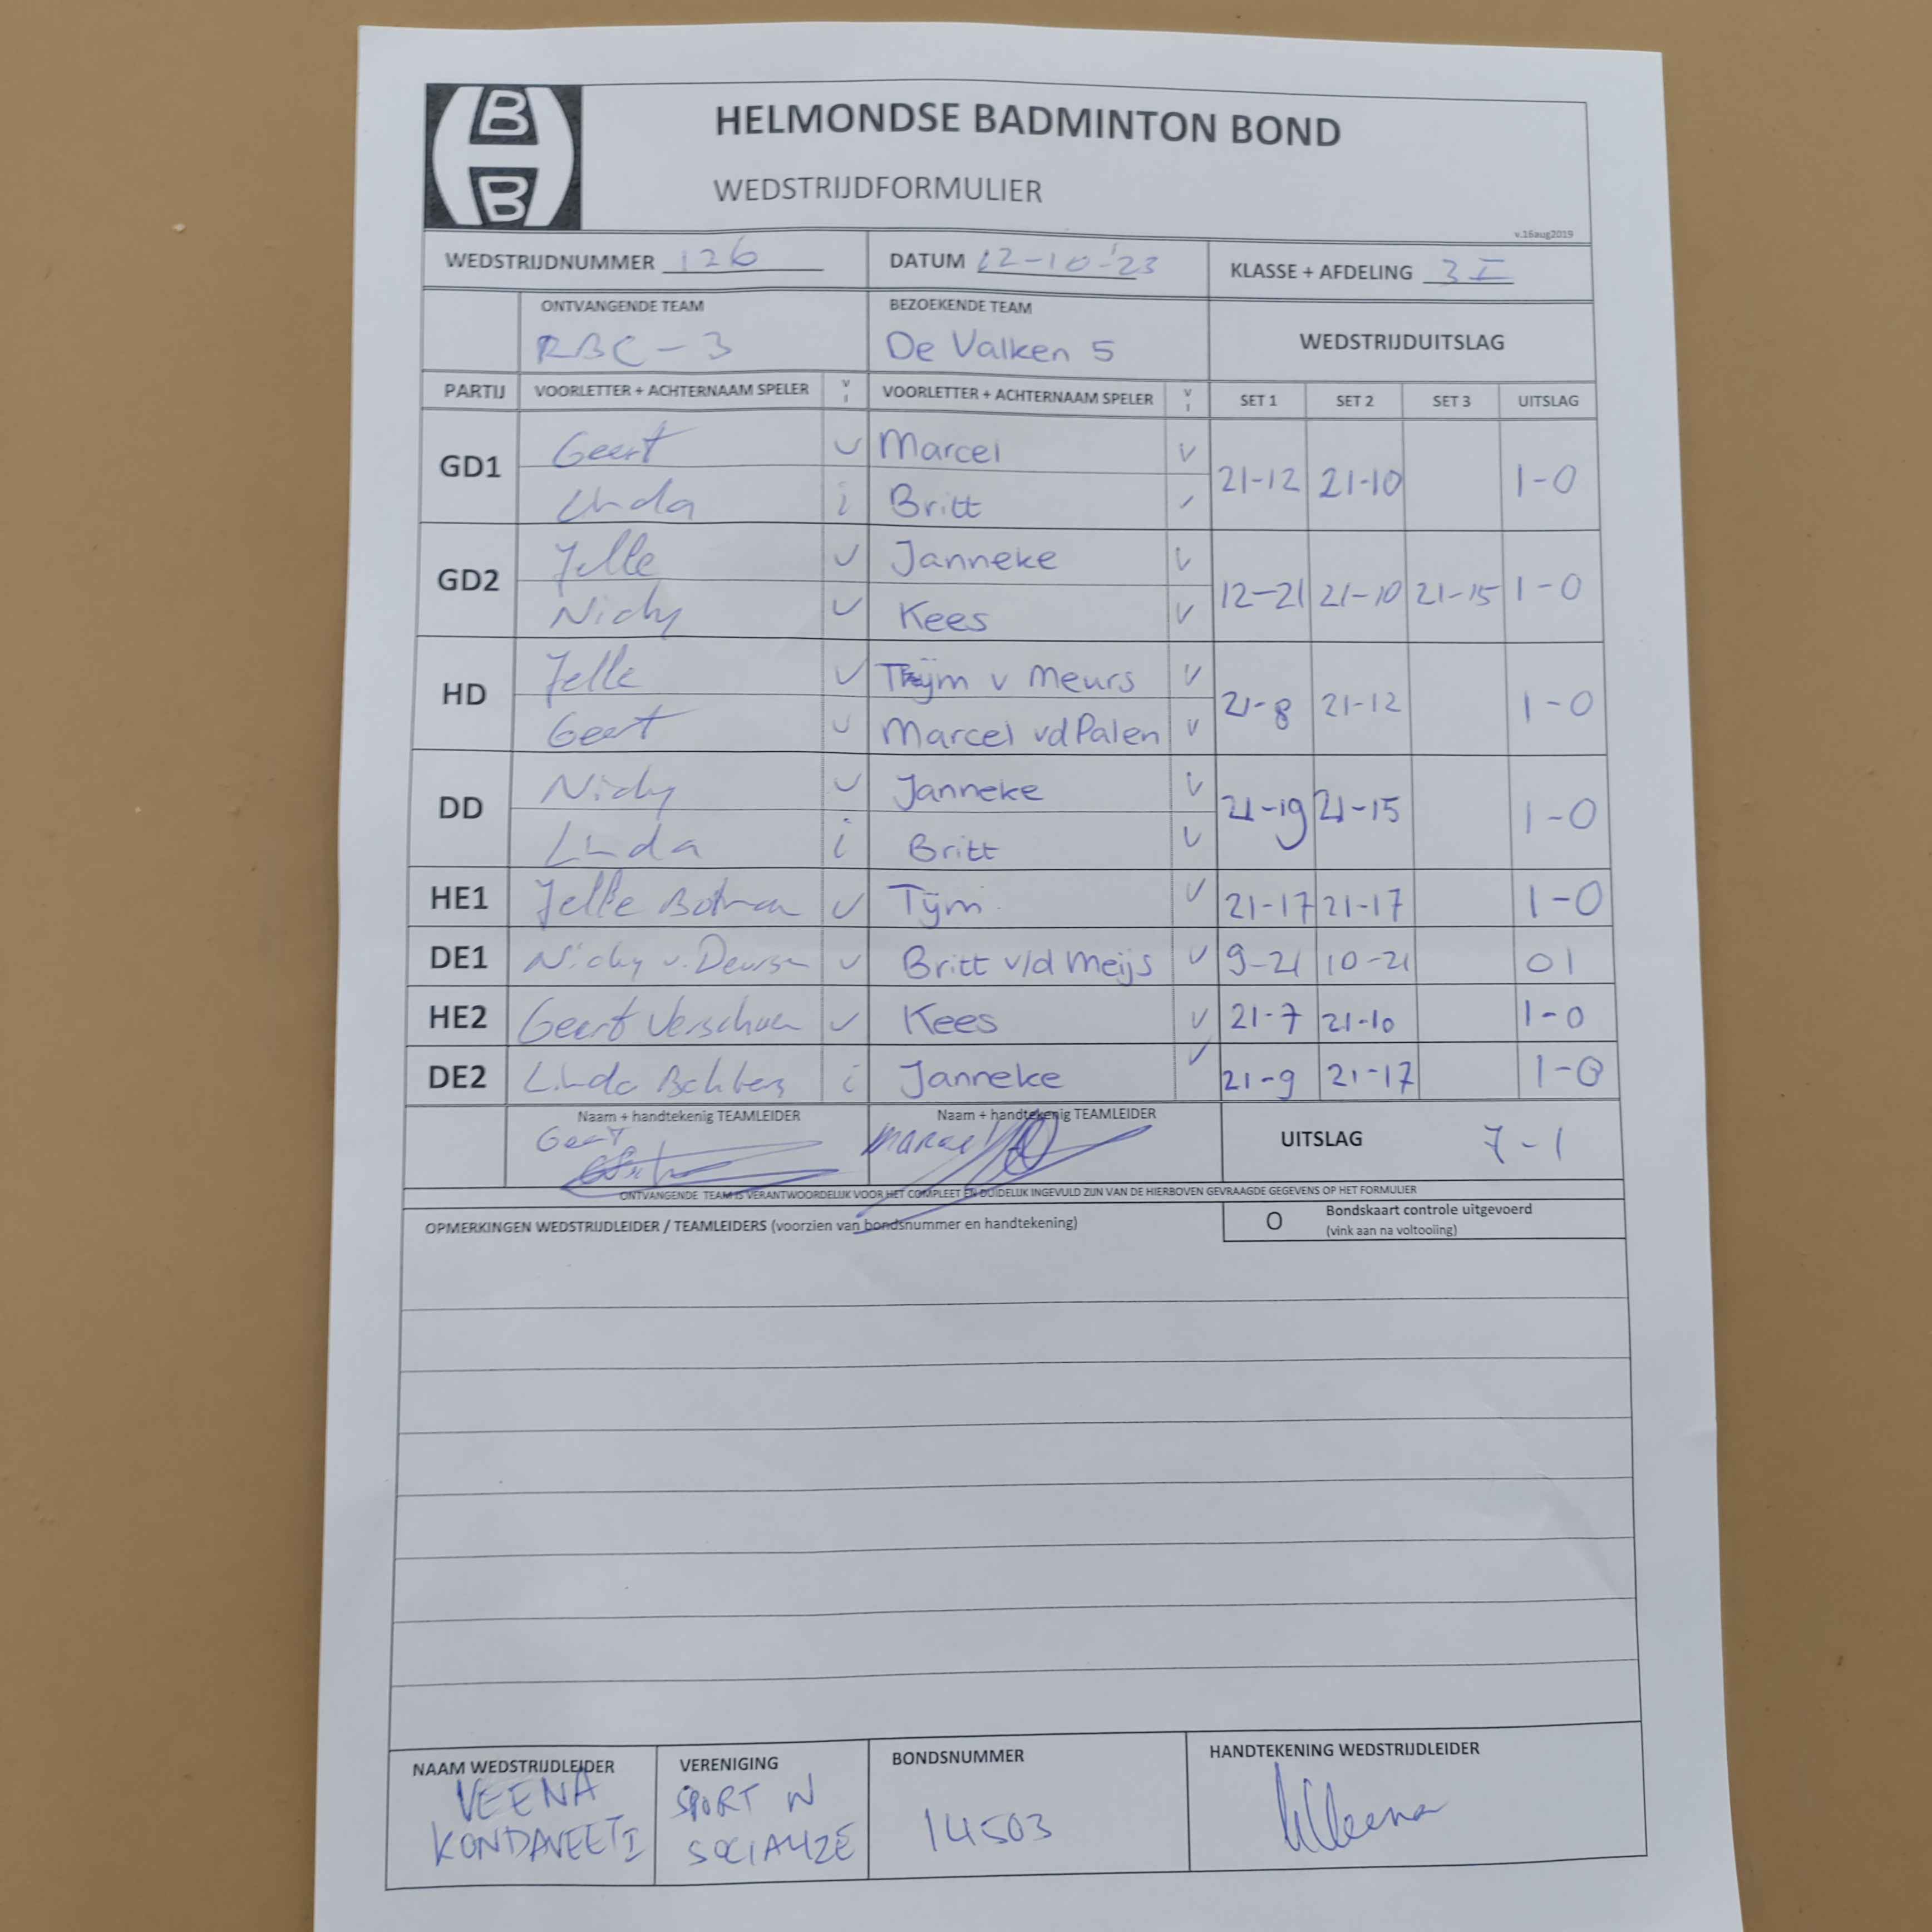 B
B
HELMONDSE BADMINTON BOND
WEDSTRIJDFORMULIER
v.16aug2019
WEDSTRIJDNUMMER 126 DATUM 12-10-'23 KLASSE + AFDELING 3 I
ONTVANGENDE TEAM BEZOEKENDE TEAM WEDSTRIJDUITSLAG
RBC-3 De Valken 5
PARTIJ VOORLETTER + ACHTERNAAM SPELER V I VOORLETTER + ACHTERNAAM SPELER V I SET 1 SET 2 SET 3 UITSLAG
GD1 Geert v Marcel v 21-12 21-10 1-0
Linda i Britt
GD2 Jelle v Janneke v 12-21 21-10 21-15 1-0
Nicky v Kees v
HD Jelle v Tijm v Meurs v 21-8 21-12 1-0
Geert v Marcel vd Palen v
DD Nicky v Janneke v 21-19 21-15 1-0
Linda i Britt v
HE1 Jelle v Tijm v 21-17 21-17 1-0
DE1 Nicky v. Deursen v Britt v/d Meijs v 9-21 10-21 0 1
HE2 Geert v Kees v 21-7 21-10 1-0
DE2 Linda i Janneke v 21-9 21-17 1-0
Naam + handtekenig TEAMLEIDER Naam + handtekenig TEAMLEIDER UITSLAG 7-1
Geert Marcel
ONTVANGENDE TEAM IS VERANTWOORDELIJK VOOR HET COMPLEET EN DUIDELIJK INGEVULD ZIJN VAN DE HIERBOVEN GEVRAAGDE GEGEVENS OP HET FORMULIER
OPMERKINGEN WEDSTRIJDLEIDER / TEAMLEIDERS (voorzien van bondsnummer en handtekening) O Bondskaart controle uitgevoerd
(vink aan na voltooiing)
NAAM WEDSTRIJDLEIDER VERENIGING BONDSNUMMER HANDTEKENING WEDSTRIJDLEIDER
VEENA SPORT N 14503 Veena
KONDAVEETI SOCIALIZE